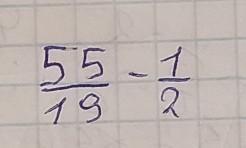 55/19 - 1/2